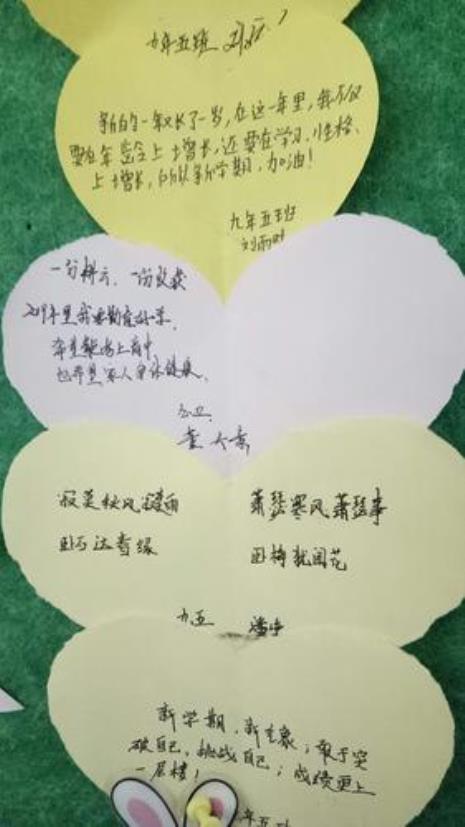 九年五班
新的一年又长了一岁,在这一年里,我不仅
要在年龄上增长,还要在学习、性格、
上增长,所以新学期,加油!
九年五班
刘雨
一分耕云、一份收获
2019年里我要勤奋好学,
希望能考上高中
也希望家人身体健康。
九五
董
寂 秋风 雨
萧瑟寒风萧瑟事
卧 达 缘
因梅就闻花
九五 潘
新学期,新气象;敢于突
破自己,挑战自己;成绩更上
一层楼!
年五